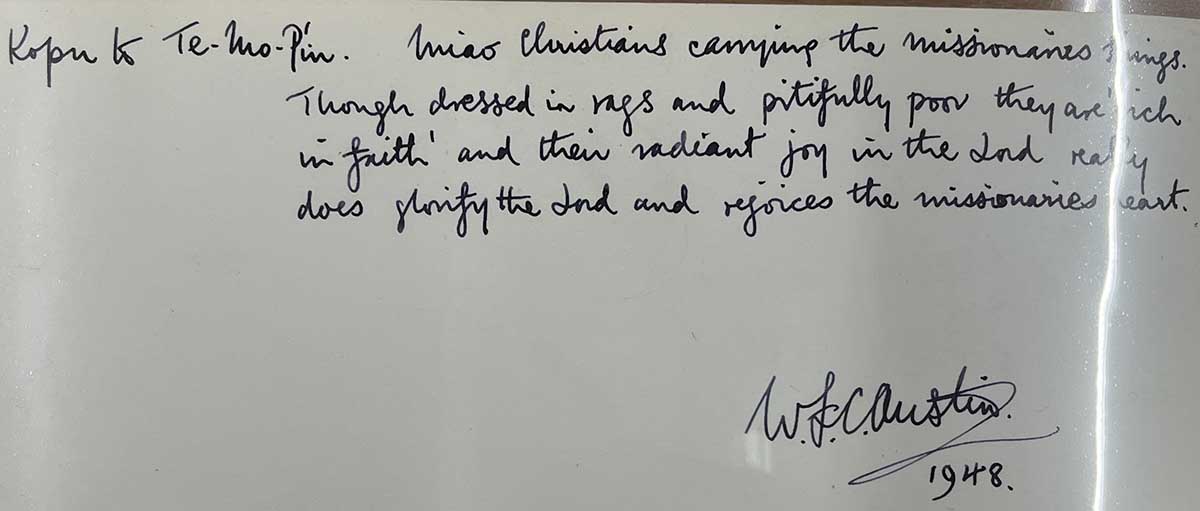 Kopu to Te-Mo-Pin. Miao Christians carrying the missionaries things.
Though dressed in rags and pitifully poor they are 'rich
in faith' and their radiant joy in the Lord really
does glorify the Lord and rejoices the missionaries heart.
W.F.C. Austin.
1948.